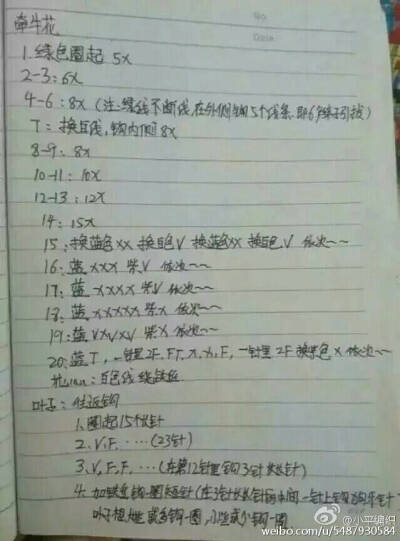 No.
Date
牵牛花
1.绿色圈起 5X
2-3:6X
4-6:8X(注:绿线不断线,在外侧钩5个线条.即6辫子引拔)
7:换白线,钩内侧8X
8-9:8X
10-11:10X
12-13:12X
14:15X
15:换蓝色XX 换白色V 换蓝色XX 换白色V 依次~~
16:蓝XXX 紫V 依次~~
17:蓝XXXX 紫V 依次~~
18:蓝XXXXX 紫X 依次~~
19:蓝VXVXV 紫X 依次~~
20:蓝T,一针里2F,FT,X,X,F,一针里2F换紫色X 依次~~
花:白色线绕铁丝
叶子:往返钩
1.圈起15个针
2.V,F,……(23针)
3.V,F,F,…(在第12针里钩3针长长针)
4.加铁丝钩一圈短针(在3针长长针的中间一针上钩狗牙针
叶子植
钩一圈
@小平编织
weibo.com/u/5487930584